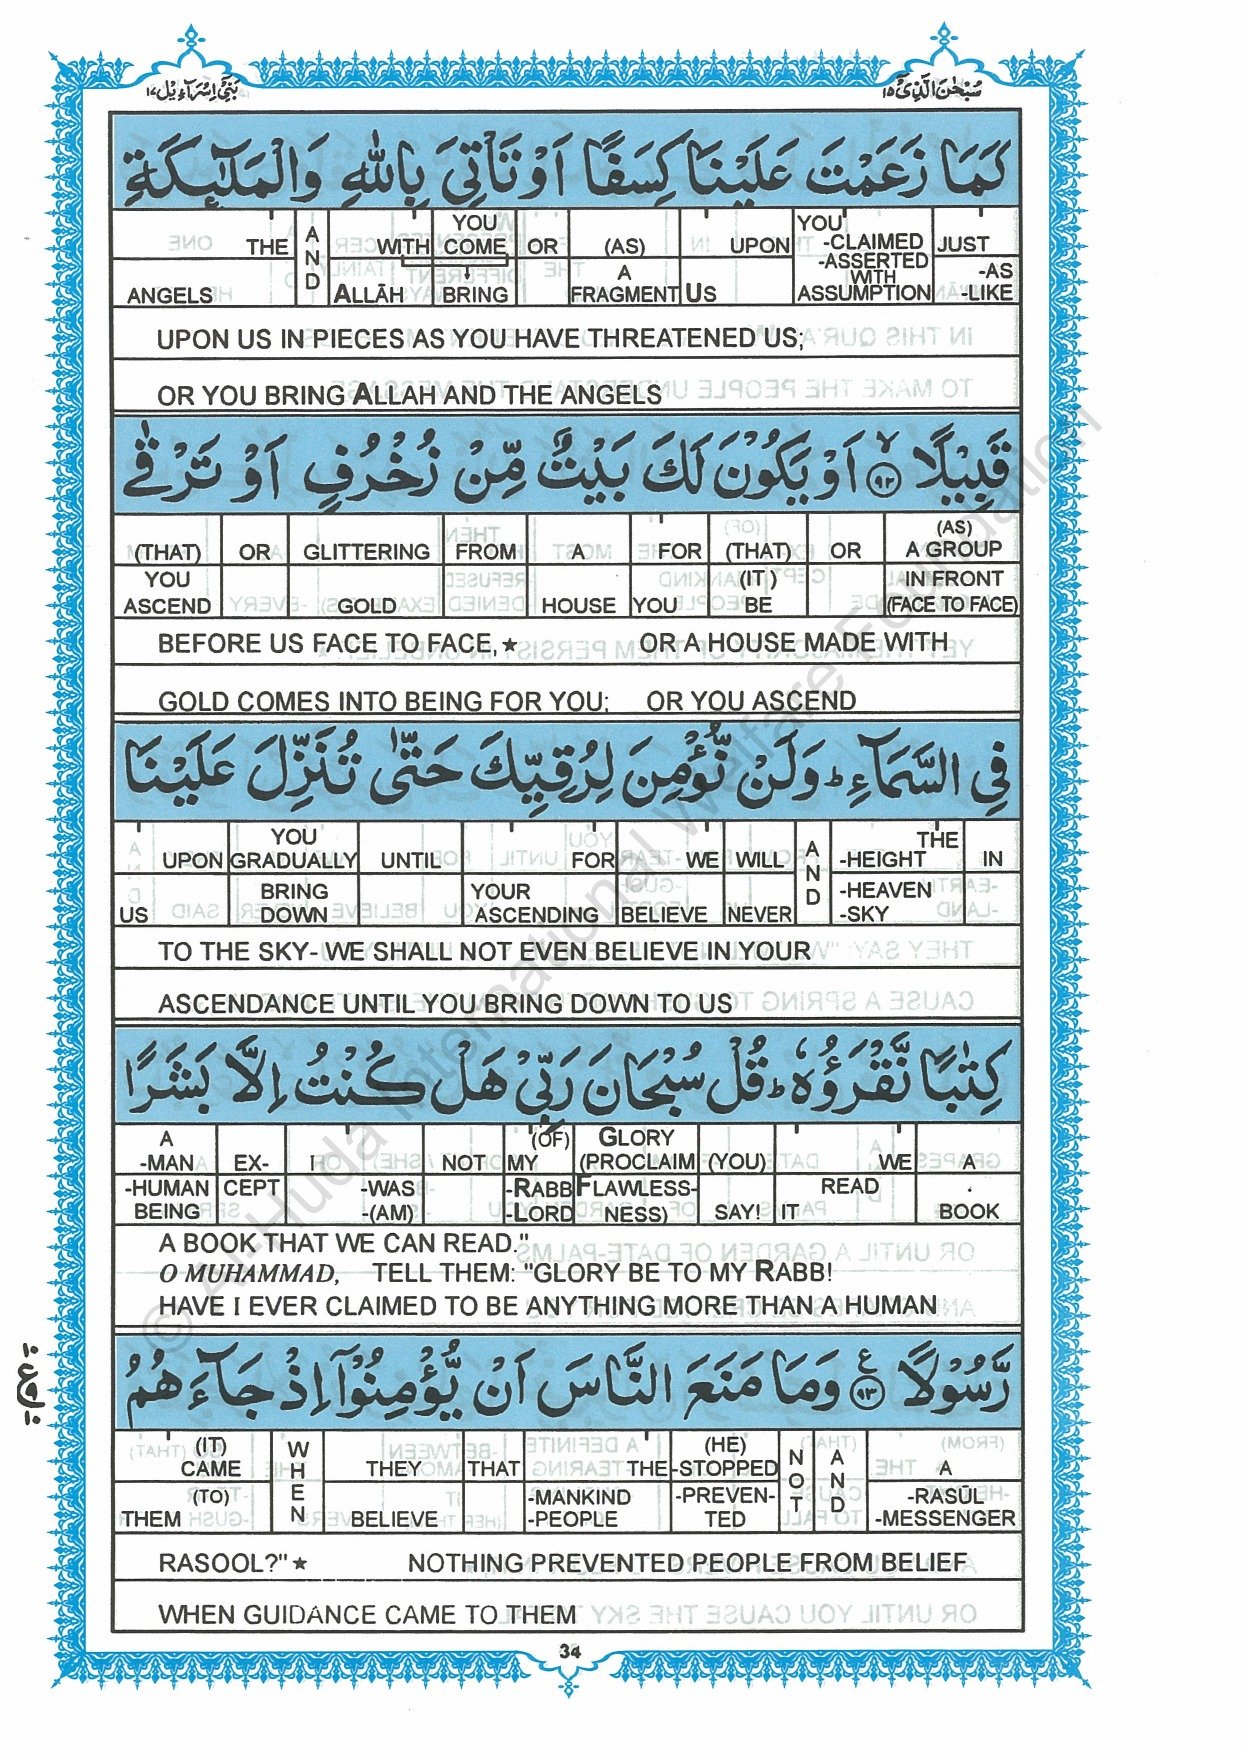 بَنِيْٓ اِسْرَآءِيْل ١٧
سُبْحٰنَ الَّذِيْٓ ١٥
كَمَا زَعَمْتَ عَلَيْنَا كِسَفًا اَوْ تَاْتِيَ بِاللّٰهِ وَالْمَلٰٓئِكَةِ
THE AND WITH YOU COME OR (AS) UPON YOU -CLAIMED -ASSERTED WITH ASSUMPTION JUST
ANGELS ALLĀH BRING A FRAGMENT US -AS -LIKE
UPON US IN PIECES AS YOU HAVE THREATENED US;
OR YOU BRING ALLAH AND THE ANGELS
قَبِيْلًا ۙ٩٢ اَوْ يَكُوْنَ لَكَ بَيْتٌ مِّنْ زُخْرُفٍ اَوْ تَرْقٰى
(THAT) OR GLITTERING FROM A FOR (THAT) OR (AS) A GROUP
YOU ASCEND GOLD HOUSE YOU (IT) BE IN FRONT (FACE TO FACE)
BEFORE US FACE TO FACE,★ OR A HOUSE MADE WITH
GOLD COMES INTO BEING FOR YOU; OR YOU ASCEND
فِي السَّمَآءِ ؕ وَلَنْ نُّؤْمِنَ لِرُقِيِّكَ حَتّٰى تُنَزِّلَ عَلَيْنَا
UPON YOU GRADUALLY UNTIL FOR WE WILL AND THE -HEIGHT IN
US BRING DOWN YOUR ASCENDING BELIEVE NEVER -HEAVEN -SKY
TO THE SKY-WE SHALL NOT EVEN BELIEVE IN YOUR
ASCENDANCE UNTIL YOU BRING DOWN TO US
كِتٰبًا نَّقْرَؤُهٗ ؕ قُلْ سُبْحَانَ رَبِّيْ هَلْ كُنْتُ اِلَّا بَشَرًا
A -MAN EX- I NOT (OF) MY GLORY (PROCLAIM (YOU) WE A
-HUMAN BEING CEPT -WAS -(AM) -RABB -LORD FLAWLESS-NESS) SAY! IT READ BOOK
A BOOK THAT WE CAN READ."
O MUHAMMAD, TELL THEM: "GLORY BE TO MY RABB!
HAVE I EVER CLAIMED TO BE ANYTHING MORE THAN A HUMAN
رَّسُوْلًا ۧ٩٣ وَمَا مَنَعَ النَّاسَ اَنْ يُّؤْمِنُوْٓا اِذْ جَآءَهُمُ
(IT) CAME WHEN THEY THAT THE (HE) -STOPPED NOT AND A
(TO) THEM BELIEVE -MANKIND -PEOPLE -PREVEN-TED -RASŪL -MESSENGER
RASOOL?"★ NOTHING PREVENTED PEOPLE FROM BELIEF
WHEN GUIDANCE CAME TO THEM
34
© Al-Huda International Welfare Foundation